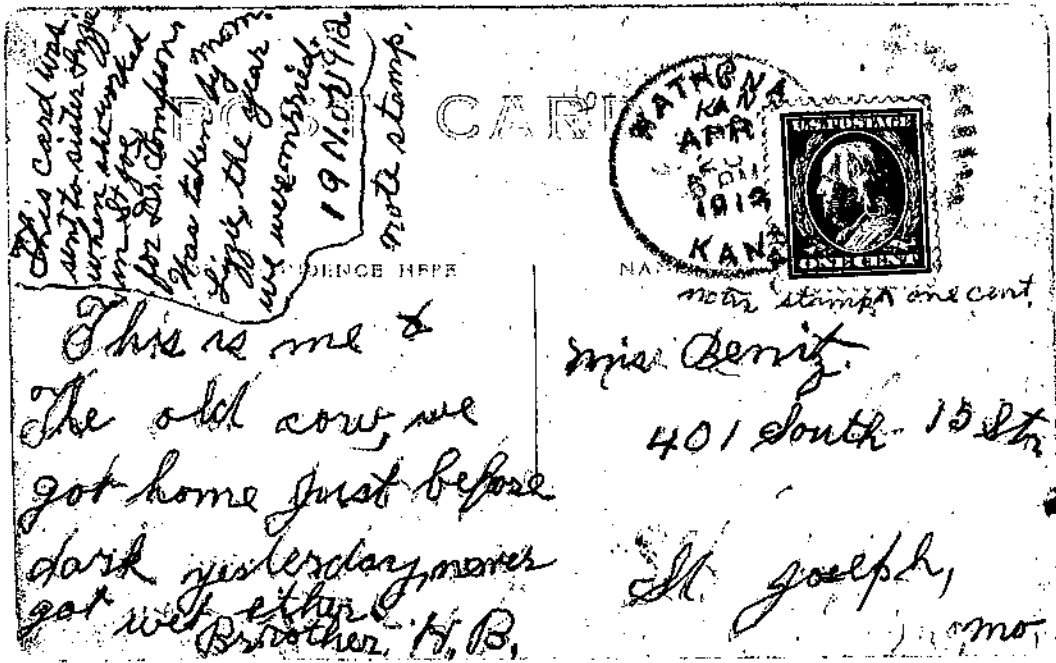 This card was
sent to sister Lizzie
when she worked
in St Joe
for Dr. Thompson.
Was taken by Mom.
Lizzie, the year
we were married.
19 Nov 1912
note stamp.
POST CARD
WATHENA
KAN
APR
5 PM
1912
KAN
U.S. POSTAGE
ONE CENT
HERE
note stamp one cent.
This is me &
The old cow, we
got home Just before
dark yesterday, never
got wet ether.
Brother, H, B,
Miss Benitz.
401 South 15 Str
St Joseph,
mo,